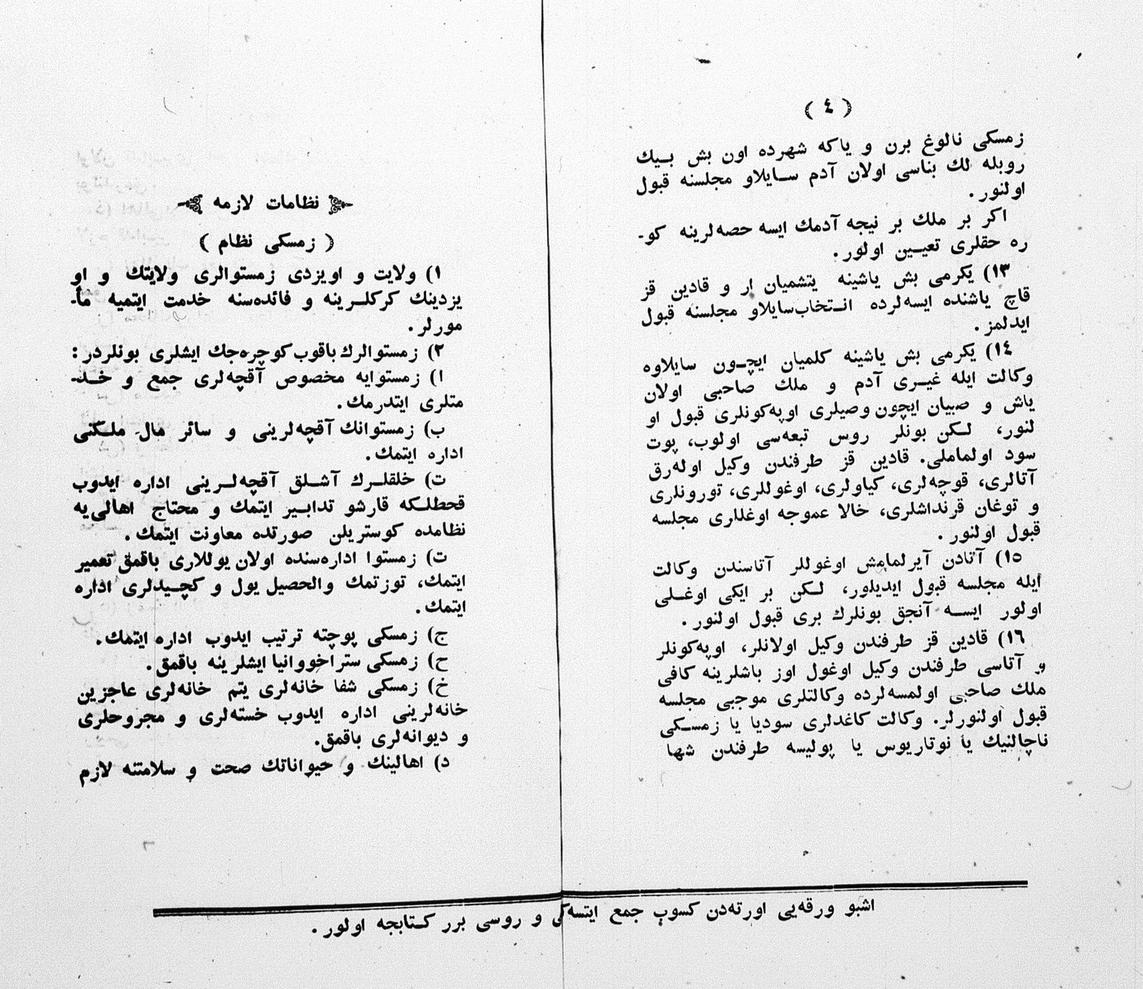 (٤)
زمسكى نالوغ برن و ياكه شهرده اون بش بــيك
روبله لك بناسى اولان آدم ســايلاو مجلسنه قبول
اولنور.
اكر بر ملك بر نيجه آدمك ايسه حصه‌لرينه كو-
ره حقلرى تعيــين اولور.
١٣) يكرمى بش ياشينه يتشميان ار و قادين قز
قاچ ياشنده ايسه‌لرده انــتخاب‌سايلاو مجلسنه قبول
ايدلمز.
١٤) يكرمى بش ياشينه كلميان ايچــون سايلاوه
وكالت ايله غيــرى آدم و ملك صاحبى اولان
ياش و صبيان ايچون وصيلرى اوپه‌كونلرى قبول او
لنور، لــكن بونلر روس تبعه‌سى اولوب، پوت
سود اولماملى. قادين قز طرفندن وكيل اوله‌رق
آتالرى، قوچه‌لرى، كياولرى، اوغوللرى، تورونلرى
و توغان قرنداشلرى، خالا عموجه اوغللرى مجلسه
قبول اولنور.
١٥) آتادن آيرلمامش اوغوللر آتاسندن وكالت
ايله مجلسه قبول ايديلور، لــكن بر ايكى اوغــلى
اولور ايســه آنجق بونلرك برى قبول اولنور.
١٦) قادين قز طرفندن وكيل اولانلر، اوپه‌كونلر
و آتاسى طرفندن وكيل اوغول اوز باشلرينه كافى
ملك صاحبى اولمسه‌لرده وكالتلرى موجبى مجلسه
قبول اولنورلر. وكالت كاغدلرى سوديا يا زمســكى
ناچالنيك يا نوتاريوس يا پوليسه طرفندن شها
نظامات لازمه
( زمسكى نظام )
١) ولايت و اويزدى زمستوالرى ولايتك و او
يزدينك كركلــرينه و فائده‌سنه خدمت ايتميه مأ-
مورلر.
٢) زمستوالرك باقوب كوچره‌جك ايشلرى بونلردر:
ا) زمستوايه مخصوص آقچه‌لرى جمع و خــد-
متلرى ايتدرمك.
ب) زمستوانك آقچه‌لرينى و سائر مال ملــكنى
اداره ايتمك.
ت) خلقلــرك آشــلق آقچه‌لــرينى اداره ايدوب
قحطلــكه قارشو تدابــير ايتمك و محتاج اهالى‌يه
نظامده كوستريلن صورتده معاونت ايتمك.
ث) زمستوا اداره‌سنده اولان يوللارى باقمق تعمير
ايتمك، توزتمك والحصيل يول و كچيدلرى اداره
ايتمك.
ج) زمسكى پوچته ترتيب ايدوب اداره ايتمك.
ح) زمسكى ستراخووانيا ايشلرينه باقمق.
خ) زمسكى شفا خانه‌لرى يتم خانه‌لرى عاجزين
خانه‌لرينى اداره ايدوب خسته‌لرى و مجروحلرى
و ديوانه‌لرى باقمق.
د) اهالينك و حيواناتك صحت و سلامتنه لازم
اشبو ورقه‌يى اورته‌دن كسوب جمع ايتسه‌ك و روسى برر كــتابجه اولور.